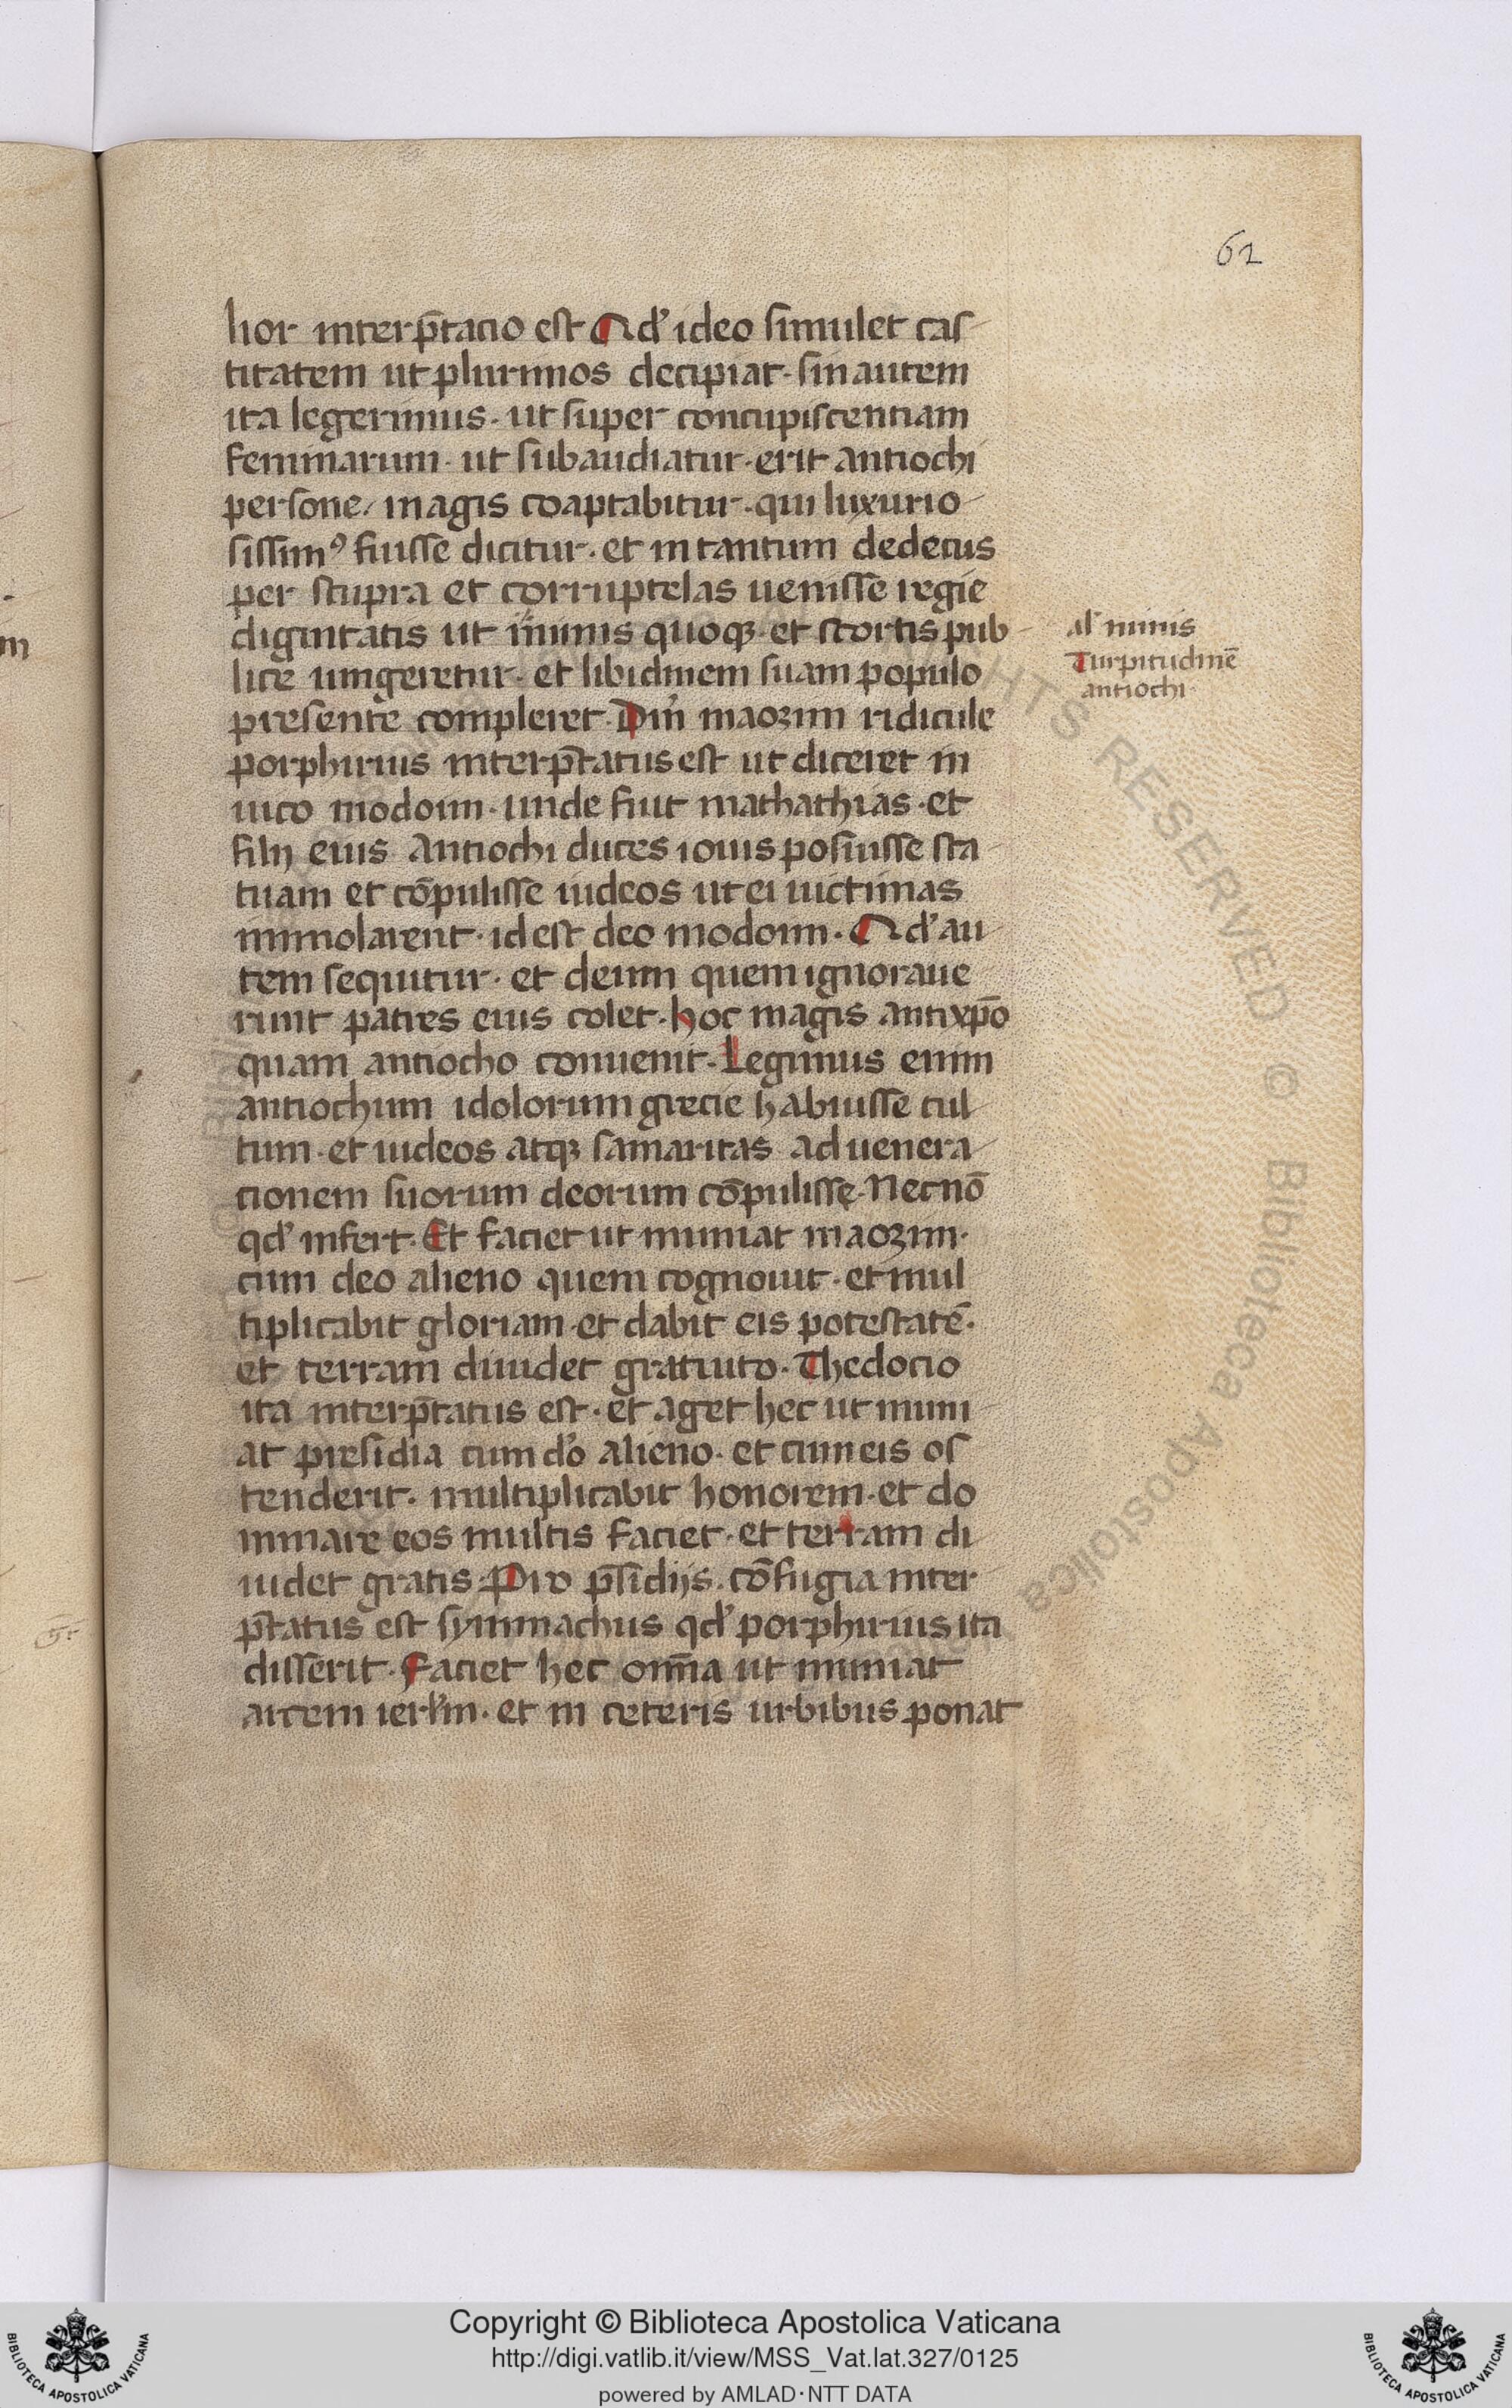 62
lior interp̄tatio est Qd' ideo simulet cas
titatem ut plurimos decipiat. sin autem
ita legerimus. ut super concupiscentiam
feminarum. ut subaudiatur. erit antiochi
persone, magis coaptabitur. qui luxurio
sissim⁹ fuisse dicitur. et in tantum dedecus
per stupra et corruptelas uenisse regie
digintatis ut mimis quoq; et scortis pub
lice iungeretur. et libidinem suam populo
presente compleret. Dm̄ maozim ridicule
porphirius interp̄tatus est ut diceret in
uico modoim. unde fuit mathathias. et
filij eius antiochi duces iouis posuisse sta
tuam et cōpulisse iudeos ut ei uictimas
immolarent. id est deo modoim. Qd' au
tem sequitur. et deum quem ignoraue
runt patres eius colet. hoc magis antixp̄o
quam antiocho conuenit. Legimus enim
antiochum idolorum grecie habuisse cul
tum. et iudeos atq; samaritas ad uenera
tionem suorum deorum cōpulisse. Necnō
qd' infert. Et faciet ut muniat maozim.
cum deo alieno quem cognouit. et mul
tiplicabit gloriam. et dabit eis potestatē.
et terram diuidet gratuito. Thedocio
ita interp̄tatus est. et aget hec ut muni
at presidia cum do alieno. et cum eis os
tenderit. multiplicabit honorem. et do
minare eos multis faciet. et terram di
uidet gratis. Pro p̄sidijs. cōfugia inter
p̄tatus est symmachus qd' porphirius ita
disserit. Faciet hec om̄a ut muniat
arcem ierl'm. et in ceteris urbibus ponat
al' mimis
Turpitudinē
antiochi.
Copyright © Biblioteca Apostolica Vaticana
http://digi.vatlib.it/view/MSS_Vat.lat.327/0125
powered by AMLAD·NTT DATA
BIBLIOTECA APOSTOLICA VATICANA
BIBLIOTECA APOSTOLICA VATICANA